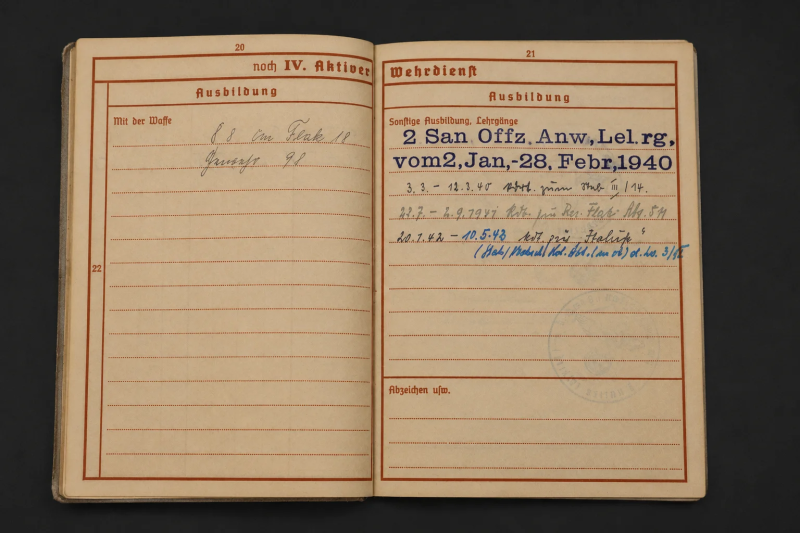 20
noch IV. Aktiver
Ausbildung
Mit der Waffe
8 8 cm Flak 18
Gewehr 98
22
21
Wehrdienst
Ausbildung
Sonstige Ausbildung, Lehrgänge
2 San Offz. Anw, Lel. rg,
vom2, Jan,-28, Febr, 1940
3. 3. - 12. 3. 40 kdrt. zum Stab III/14.
22.7. - 2.9.1941 Kdt. zu Res. Flak Abt.
20.1.42 - 10.5.42 kdt. zur
d. Lw. 3/VI
Abzeichen usw.